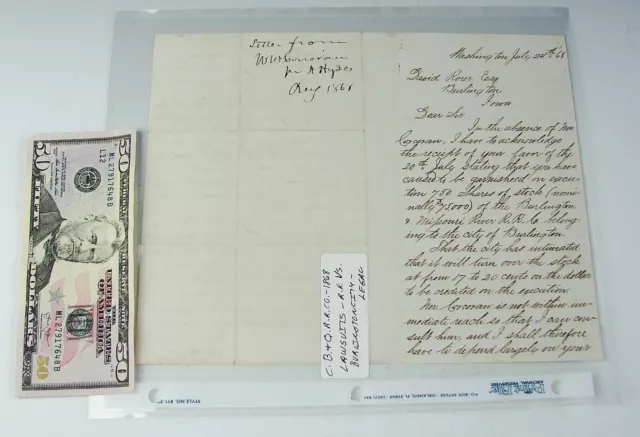 Letter from
W W Corcoran
per A Hyde
Aug 1868
Washington July 24th /68
David Rorer Esq
Burlington
Iowa
Dear Sir
In the absence of Mr
Corcoran, I have to acknowledge
the receipt of your favor of the
20th July stating that you have
caused to be garnisheed on execu-
tion 750 shares of stock (nomi-
nally $75000) of the Burlington
& Missouri River R.R. Co belong-
ing to the city of Burlington.
That the city has intimated
that it will turn over the stock
at from 17 to 20 cents on the dollar
to be credited on the execution.
Mr. Corcoran is not within im-
mediate reach so that I can con-
sult him, and I shall therefore
have to depend largely on your
C.B.+Q.R.R.CO.-1868
LAWSUITS - R.R. VS.
BURLINGTON CITY -
LEGAL
50
ML 27917648B
L12
FIFTY
DOLLARS
THE UNITED STATES
OF AMERICA
ML 27917648B
50
50
50
STYLE NO. 811-
P.O. BOX
ORLANDO, FL
Print File
ARCHIVAL
PRESERVERS